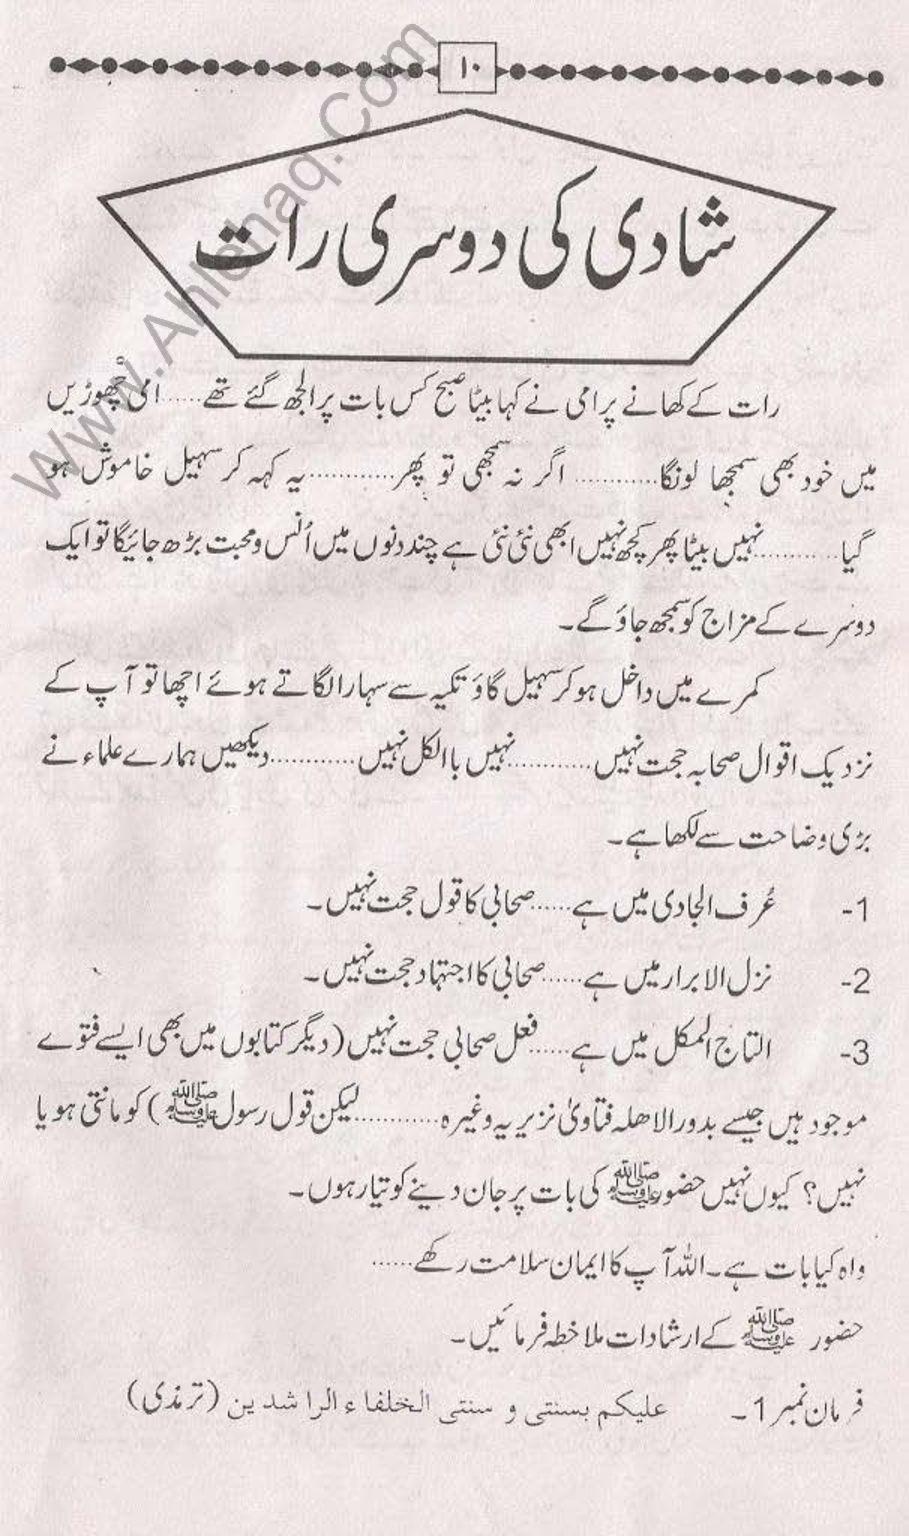 ۱۰
شادی کی دوسری رات
رات کے کھانے پر امی نے کہا بیٹا صبح کس بات پر الجھ گئے تھے......امی چھوڑیں
میں خود بھی سمجھا لونگا............ اگر نہ سمجھی تو پھر............یہ کہہ کر سہیل خاموش ہو
گیا............نہیں بیٹا پھر کچھ نہیں ابھی نئی نئی ہے چند دنوں میں اُنس و محبت بڑھ جائیگا تو ایک
دوسرے کے مزاج کو سمجھ جاؤ گے۔
کمرے میں داخل ہو کر سہیل گاؤ تکیہ سے سہارا لگاتے ہوئے اچھا تو آپ کے
نزدیک اقوال صحابہ حجت نہیں............نہیں باالکل نہیں............دیکھیں ہمارے علماء نے
بڑی وضاحت سے لکھا ہے۔
1- عُرف الجادی میں ہے......صحابی کا قول حجت نہیں۔
2- نزل الابرار میں ہے......صحابی کا اجتہاد حجت نہیں۔
3- التاج المکل میں ہے......فعل صحابی حجت نہیں (دیگر کتابوں میں بھی ایسے فتوے
موجود ہیں جیسے بدور الاھلہ فتاویٰ نزیریہ وغیرہ............لیکن قول رسول ﷺ) کو مانتی ہو یا
نہیں؟ کیوں نہیں حضور ﷺ کی بات پر جان دینے کو تیار ہوں۔
واہ کیا بات ہے۔ اللہ آپ کا ایمان سلامت رکھے......
حضور ﷺ کے ارشادات ملاخطہ فرمائیں۔
فرمان نمبر 1۔ علیکم بسنتی و سنتی الخلفاء الراشدین (ترمذی)
Www.Ahlehaq.Com